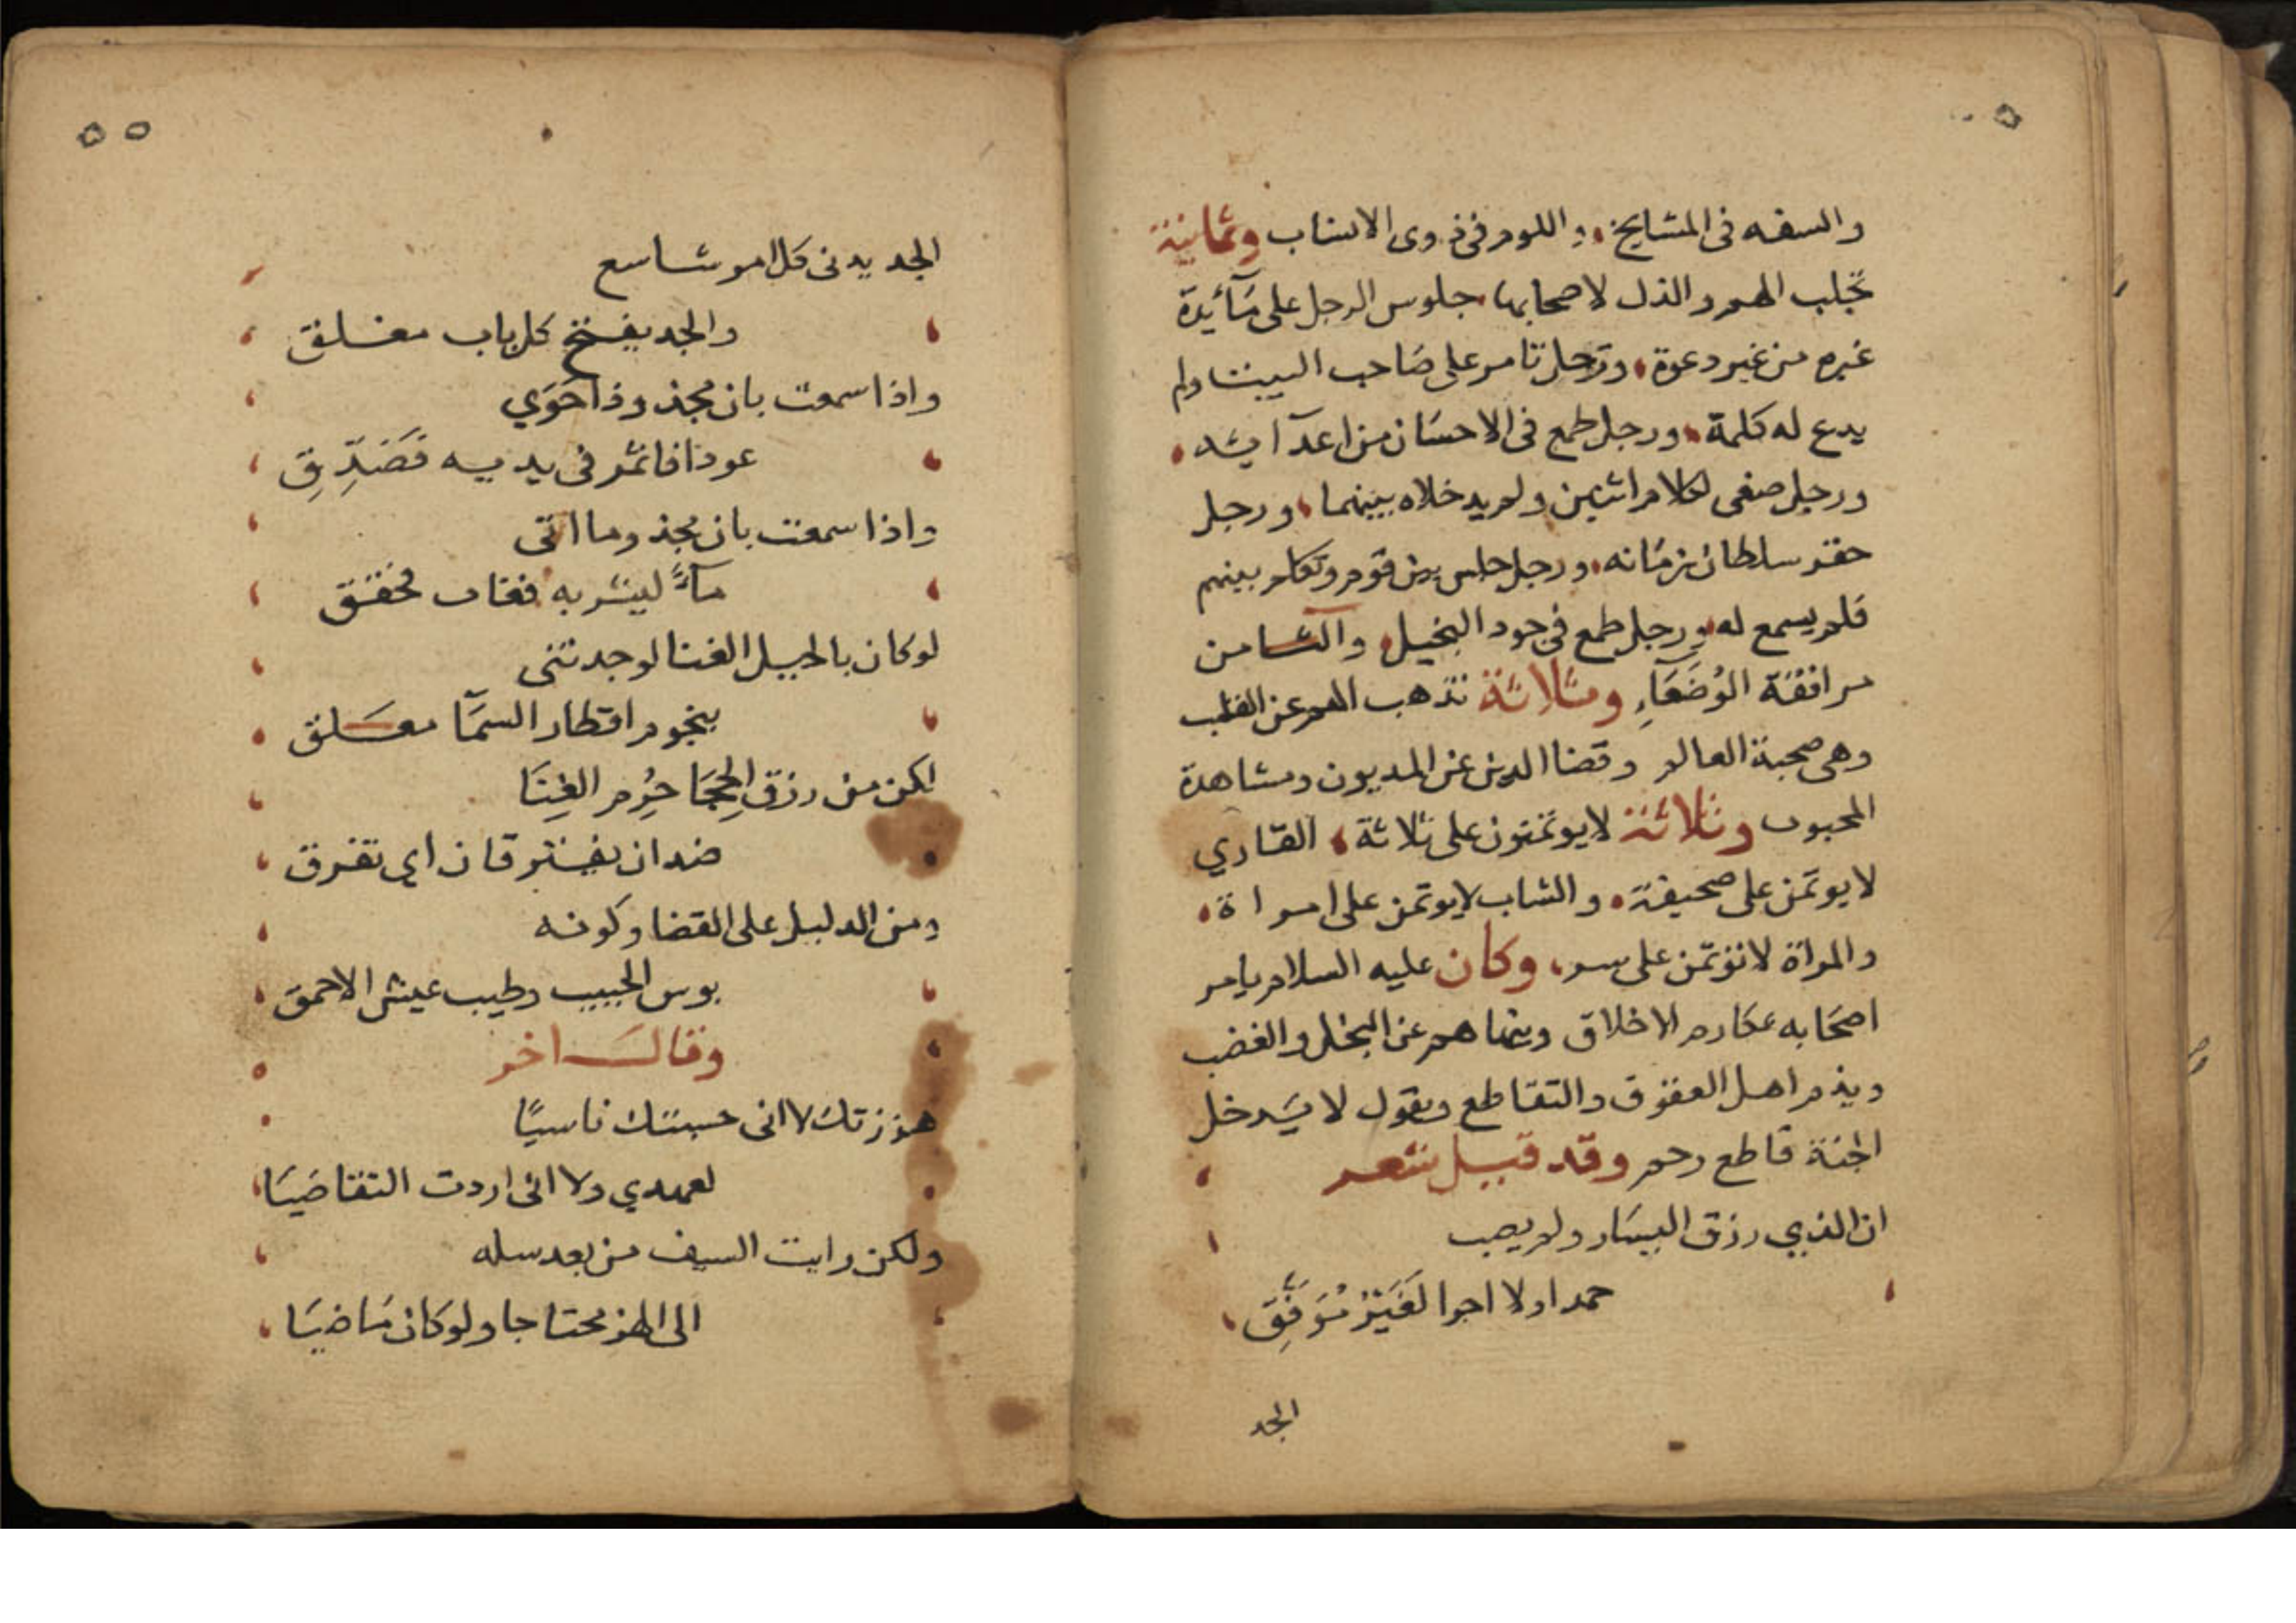 والسفه فى المشايخ، واللوم فى ذوى الانساب وثمانية
تجلب الهم والذل لاصحابها، جلوس الرجل على مَآئِدة
غيره من غير دعوة، ورجل تامر على صَاحب البيت ولم
يدع له كلمة، ورجل طمع فى الاحسَان من اعدآيه،
ورجل صغى لكلام اثنين ولم يدخلاه بينهما، ورجل
حقر سلطان زمَانه، ورجل جلس بين قوم وتكلم بينهم
فلم يسمع له، ورجل طمع فى جود البخيل، والثامن
مرافقة الوُضَعَآءِ وثلاثة تذهب الهم عن القلب
وهى صحبة العالم وقضا الدين عن المديون ومشاهدة
المحبوب وثلاثة لايوتمنون على ثلاثة، القَاري
لايوتمن على صحيفة، والشاب لايوتمن على امراة،
والمراة لاتوتمن على سر، وكان عليه السلام يامر
اصحَابه بمكارم الاخلاق وينهاهم عن البخل والغضب
ويذم اهل العقوق والتقاطع ويقول لا يَدخل
الجنة قاطع رحم وقد قيل شعر
ان الذي رزق اليسَار ولم يصب
حمدا ولا اجرا لغَيْرُ مُوَفَّقِ
الجد
٥٥
الجد يدنى كل امر شاسع
والجد يفتح كل باب مغلق
واذا سمعت بان مجذوذا حَوَي
عوذا فاثمر فى يديه فَصَدِّقِ
واذا سمعت بان مجذوما اتى
مآءً ليشربه فغاب فحقق
لوكان بالحيل الغنا لوجدتنى
بنجوم اقطار السمَا معَلق
لكن من رزق الحِجَا حُرِم الغِنَا
ضدان يفترقان اى تفرق
ومن الدليل على القضا وكونه
بوس الحبيب وطيب عيش الاحمق
وقالَ اخر
هززتك لا انى حسبتك ناسيًا
لعهدي ولا انى اردت التقاضيَا
ولكن رايت السيف من بعد سله
الى الهز محتاجا ولوكان مَاضيَا